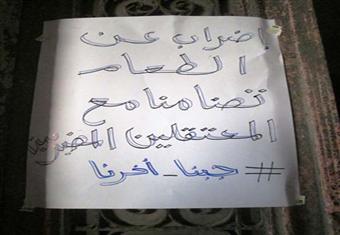 إضراب عن
الطعام
تضامنا مع
المعتقلين المضربين
# جبنا_أخرنا